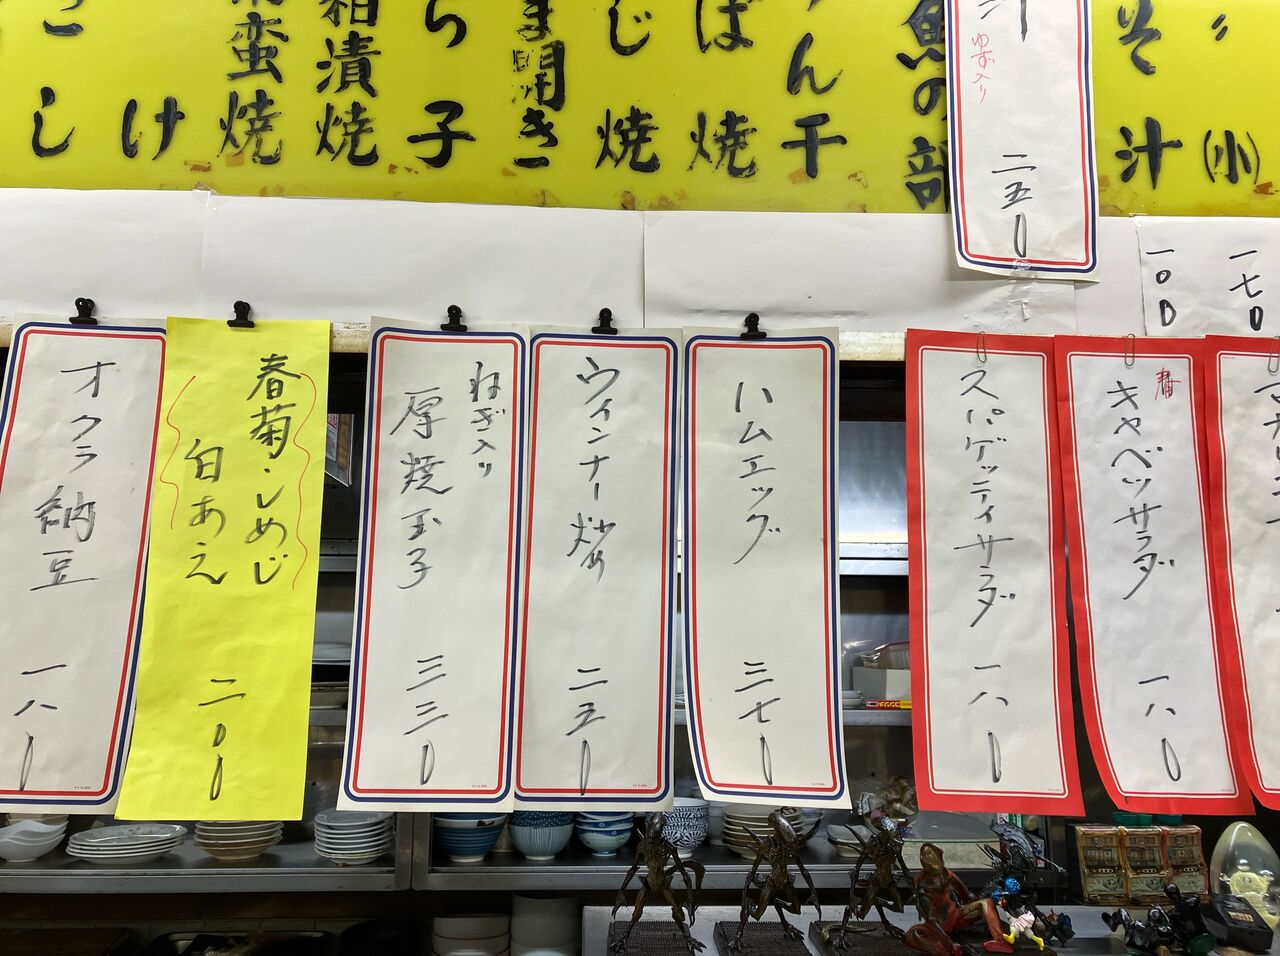 そ汁
(小)
魚の部
ん干
ば焼
じ焼
ま開き
ら子
粕漬焼
南蛮焼
け
こし
汁
ゆず入り
二五〇
一七〇
一〇〇
春
キャベツサラダ
一八〇
スパゲッティサラダ
一八〇
ハムエッグ
三七〇
ウィンナー炒め
二五〇
ねぎ入り
厚焼玉子
三三〇
春菊・しめじ
白あえ
二〇〇
オクラ納豆
一八〇